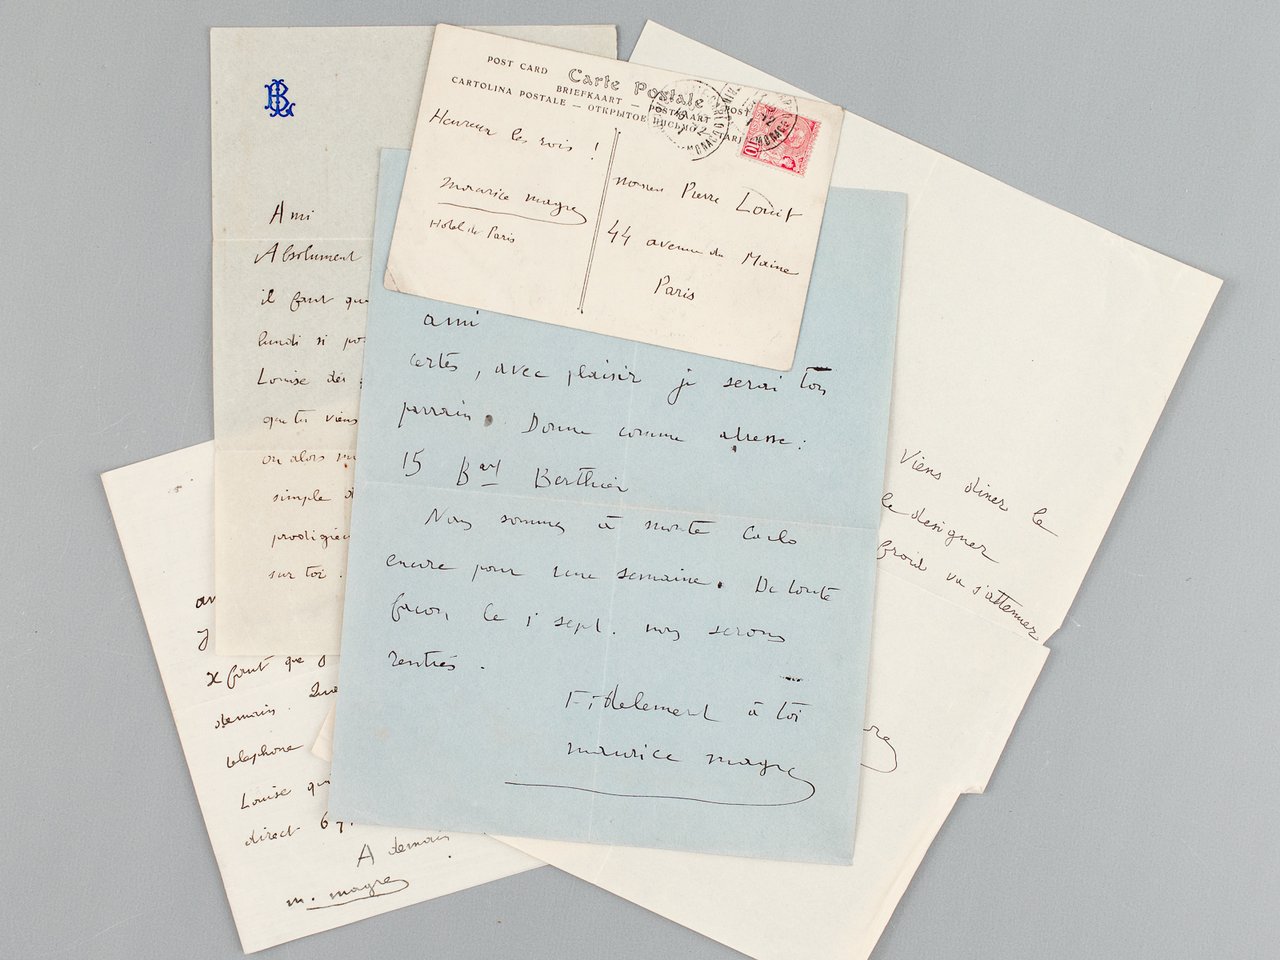 POST CARD
Carte Postale
BRIEFKAART — POSTKAART
CARTOLINA POSTALE — ОТКРЫТОЕ ПИСЬМО
Heureux les rois !
maurice magre
Hotel de Paris
Pierre Louit
44 avenue du Maine
Paris
10
Ami
Absolument
il faut que
lundi si
Louise
que tu viens
ou alors
simple
sur toi.
ami
certes, avec plaisir je serai ton
parrain. Donne comme adresse :
15 Bard Berthier
Nous sommes à monte Carlo
encore pour une semaine. De toute
façon, le 1r sept. nous serons
rentrés.
Fidelement à toi
maurice magre
Viens diner le
le designer
froid va s'attenuer
faut que
demain.
telephone
Louise
direct 67.
A demain
m. magre